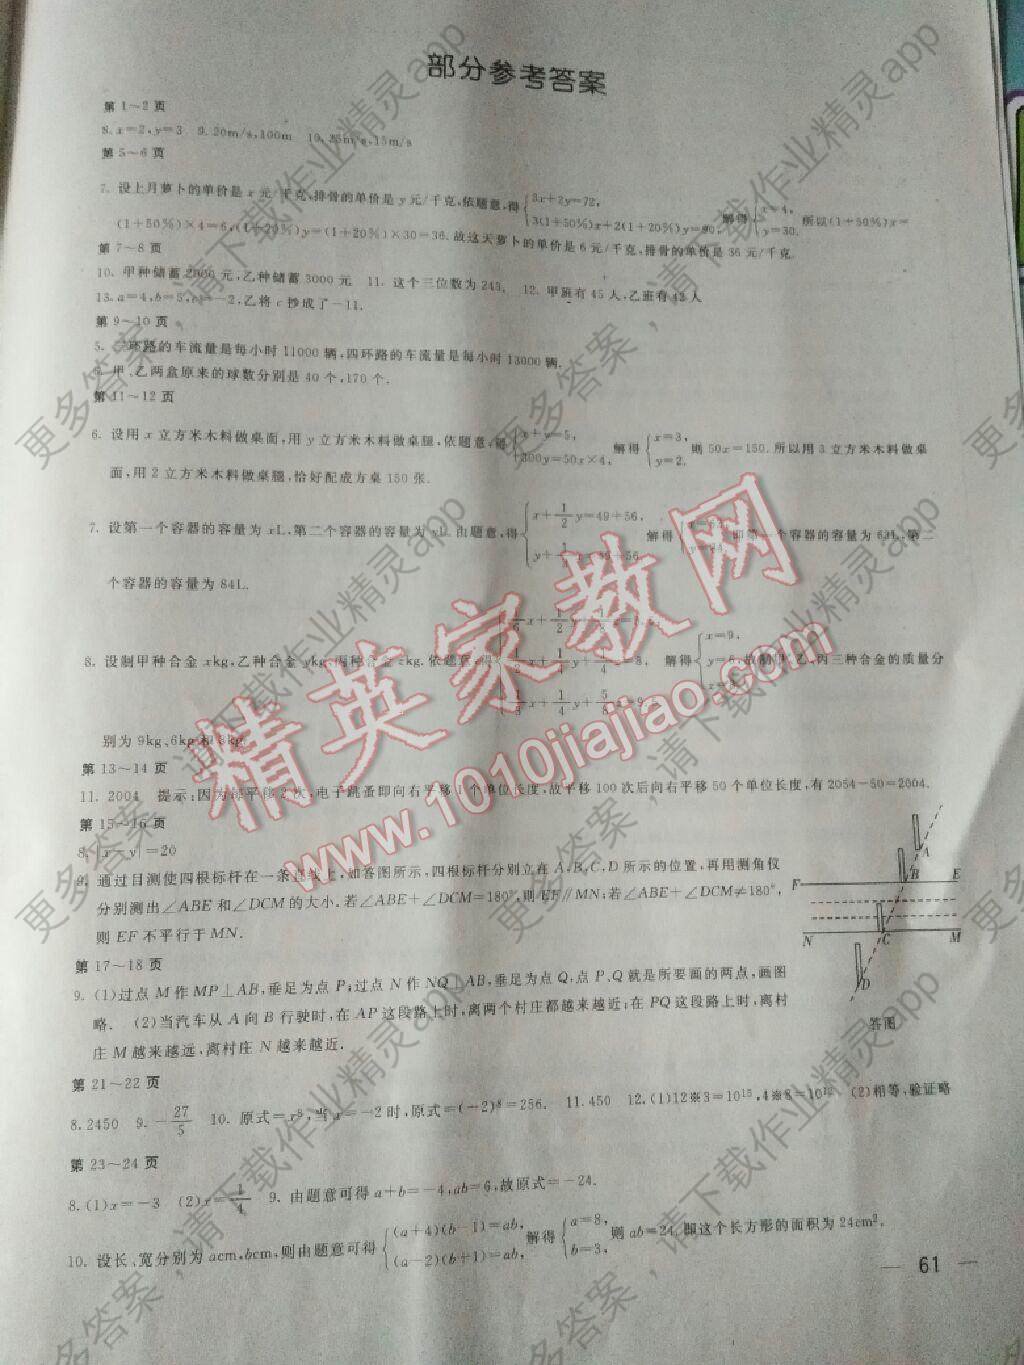 部分参考答案
第1~2页
8.x=2,y=3 9.20m/s,100m 10.35m/s,15m/s
第5~6页
7. 设上月萝卜的单价是x元/千克,排骨的单价是y元/千克,依题意,得{3x+2y=72, 3(1+50%)x+2(1+20%)y=90, 解得{x=4, y=30. 所以(1+50%)x=
(1+50%)×4=6,(1+20%)y=(1+20%)×30=36.故这天萝卜的单价是6元/千克,排骨的单价是36元/千克.
第7~8页
10. 甲种储蓄2000元,乙种储蓄3000元 11. 这个三位数为243. 12. 甲班有45人,乙班有43人
13.a=4,b=5,c=-2,乙将c抄成了-11.
第9~10页
5. 三环路的车流量是每小时11000辆,四环路的车流量是每小时13000辆.
甲、乙两盒原来的球数分别是40个,170个.
第11~12页
6. 设用x立方米木料做桌面,用y立方米木料做桌腿,依题意,得{x+y=5, 300y=50x×4, 解得{x=3, y=2. 则50x=150.所以用3立方米木料做桌
面,用2立方米木料做桌腿,恰好配成方桌150张.
7. 设第一个容器的容量为xL,第二个容器的容量为yL.由题意,得{x+1/2y=49+56, y+ x=49+56 解得 即第一个容器的容量为63L,第二
个容器的容量为84L.
8. 设制甲种合金xkg,乙种合金ykg,丙种合金zkg.依题意,得 x+1/4y+ =3, 1/3x+1/4y+5/8z=9.5 解得{x=9, y=6, 故制甲、乙、丙三种合金的质量分
别为9kg、6kg和3kg.
第13~14页
11. 2004 提示:因为每平移2次,电子跳蚤即向右平移1个单位长度,故平移100次后向右平移50个单位长度,有2054-50=2004.
第15~16页
8. |x-y|=20
9. 通过目测使四根标杆在一条直线上,如答图所示,四根标杆分别立在A,B,C,D所示的位置,再用测角仪
分别测出∠ABE和∠DCM的大小.若∠ABE+∠DCM=180°,则EF∥MN;若∠ABE+∠DCM≠180°,
则EF不平行于MN.
A
F B E
N C M
D
答图
第17~18页
9. (1)过点M作MP⊥AB,垂足为点P;过点N作NQ⊥AB,垂足为点Q,点P、Q就是所要画的两点,画图
略. (2)当汽车从A向B行驶时,在AP这段路上时,离两个村庄都越来越近;在PQ这段路上时,离村
庄M越来越远,离村庄N越来越近.
第21~22页
8.2450 9.-27/5 10. 原式=x⁸,当x=-2时,原式=(-2)⁸=256. 11.450 12.(1)12※3=10¹⁵,4※8=10¹² (2)相等,验证略
第23~24页
8.(1)x=-3 (2)x=1/4 9. 由题意可得a+b=-4,ab=6,故原式=-24.
10. 设长、宽分别为acm,bcm,则由题意可得{(a+4)(b-1)=ab, (a-2)(b+1)=ab, 解得{a=8, b=3, 则ab=24.即这个长方形的面积为24cm².
— 61 —
精英家教网
www.1010jiajiao.com
更多答案,请下载作业精灵app